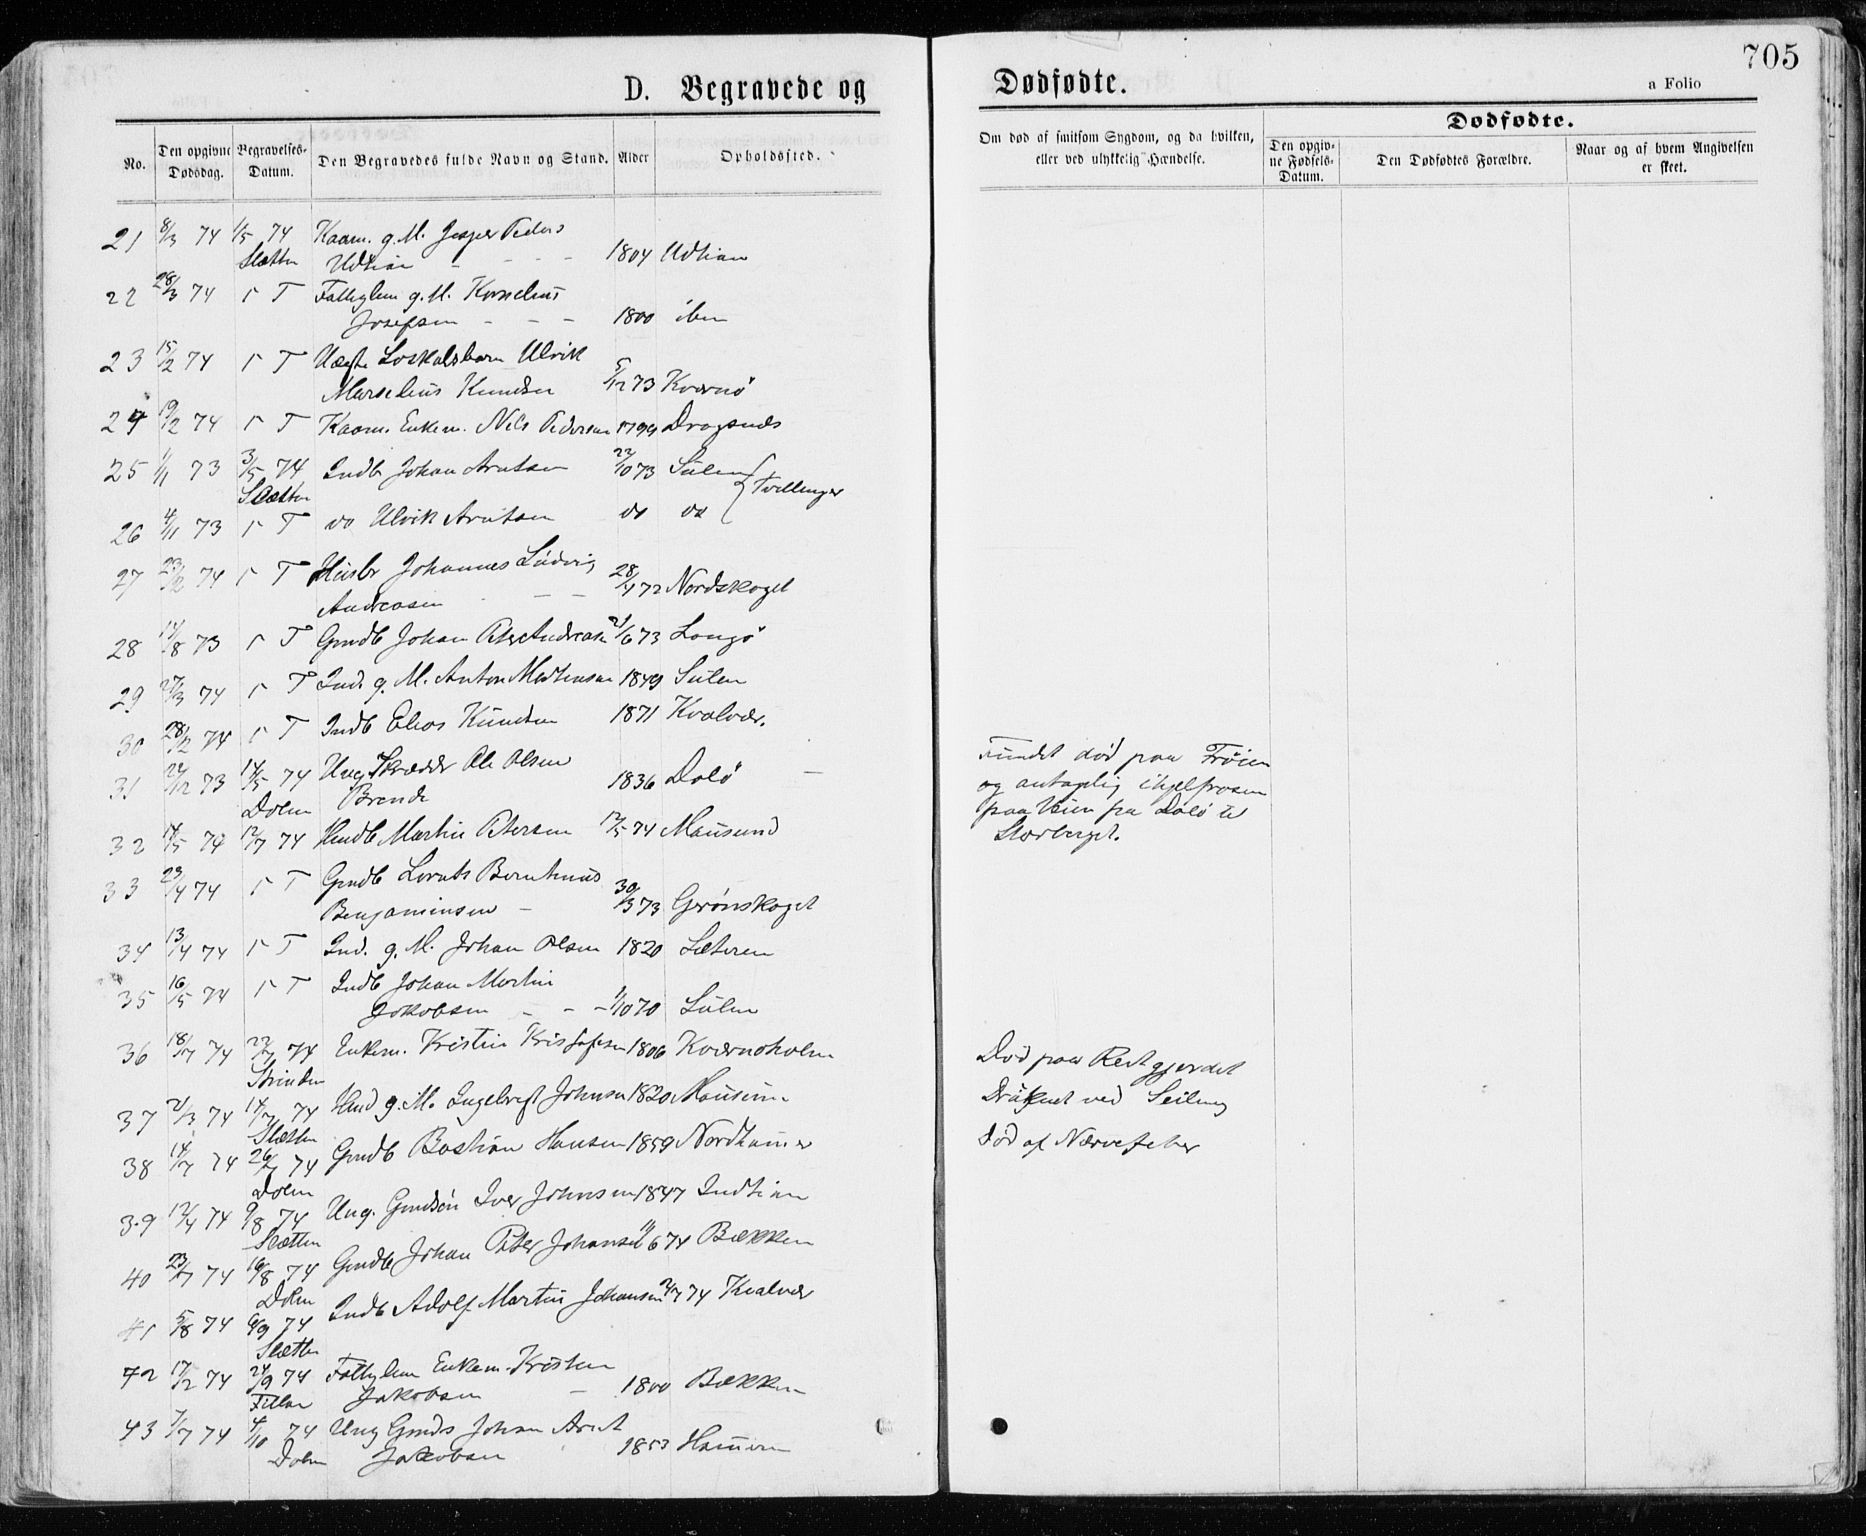 705
D. Begravede og
Dødfødte.
a Folio
No.
Den opgivne Dødsdag.
Begravelses-Datum.
Den Begravedes fulde Navn og Stand.
Alder
Opholdssted.
Om død af smitsom Sygdom, og da hvilken,
eller ved ulykkelig Hændelse.
Dødfødte.
Den opgiv-
ne Fødsels-
Datum.
Den Dødfødtes Forældre.
Naar og af hvem Angivelsen
er skeet.
21 8/3 74 1/5 74 Kaarm. g. M. Jesper Peders
Slætten Udtian - - - 1804 Udtian
22 28/3 74 Fattiglem g. M. Kornelius
Josefsen - - - 1800 iben
23 15/2 74 Uægte Loskalsbarn Ulrik
Marselius Knudsen 5/12 73 Kvernø
24 19/2 74 Kaarm. Enkem. Nils Pedersen 1799 Dragsnæs
25 1/11 73 3/5 74 Indb Johan Arntsen 22/10 73 Sulen
Slætten Tvillinger
26 4/11 73 do Ulrik Arntsen do do
27 23/2 74 Husbr Johannes Ludvig
Andreasen - - 28/1 72 Nordskaget
28 14/8 73 Gmdb Johan Peter Andreas 21/6 73 Langø
29 27/3 74 Ind. g. M. Anton Martinsen 1849 Sulen
30 28/2 74 Indb Elias Knudsen 1871 Kvalvær.
31 24/12 73 14/5 74 Ung. Skrædder Ole Olsen
Dolm Brende 1836 Dolø
Fundet død paa Frøien
og antagelig ihjelfrosen
paa Veien fra Dolø til
Storberget.
32 14/5 74 12/7 74 Hmdb Martin Petersen 12/5 74 Mausund
33 23/4 74 Gmdb Lornts Berntinus
Benjaminsen - 30/3 73 Gjrønskaget
34 13/4 74 Ind. g. M. Johan Olsen 1820 Sæteren
35 16/5 74 Indb Johan Martin
Jakobsen - - - 1/10 70 Sulen
36 18/7 74 22/7 74 Enkem. Kristen Kristofersen 1806 Kvernøholm
Død paa Reitgjerdet
37 21/3 74 14/7 74 Hmd g. M. Ingebrigt Johnsen 1820 Mausun.
Slætten
Druknet ved Seiling
38 14/7 74 26/7 74 Gmdb Bastian Hansen 1859 Nordhamer
Dolm
død af Nærvefeber
39 12/4 74 9/8 74 Ung. Gmdsøn Iver Johnsen 1847 Indtian
Slætten
40 23/7 74 16/8 74 Gmdb Johan Peter Johansen 11/6 74 Bækken
Dolm
41 5/8 74 6/9 74 Indb Adolf Martin Johansen 2/7 74 Kvalvær
Slætten
42 17/2 74 24/9 74 Fattiglem Enkem. Kristen
Fillan Jakobsen - 1800 Bækken
43 7/7 74 4/10 74 Ung Gmds Johan Arnt
Dolm Jakobsen 1853 Hamren